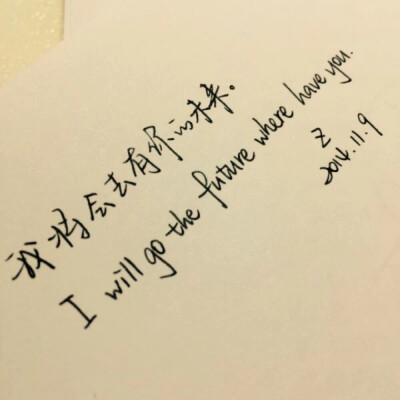 我将会去有你的未来。
I will go the future where have you.
Z
2014.11.9